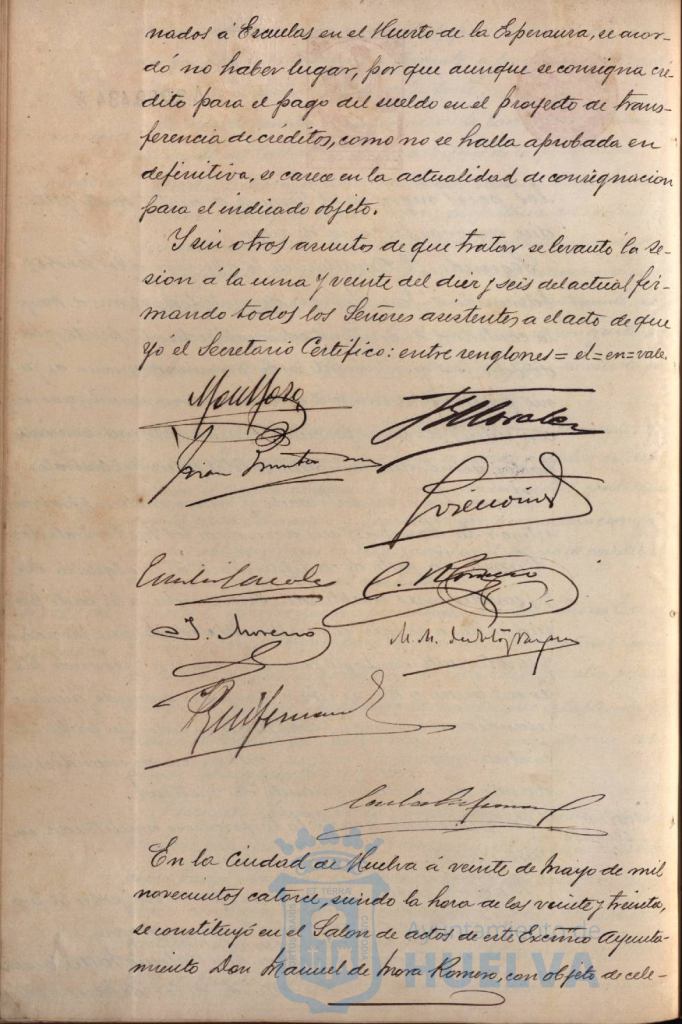 nados á Escuelas en el Huerto de la Esperanza, se acor-
dó no haber lugar, por que aunque se consigna cré-
dito para el pago del sueldo en el proyecto de trans-
ferencia de créditos, como no se halla aprobada en
definitiva, se carece en la actualidad de consignacion
para el indicado objeto.
Y sin otros asuntos de que tratar se levantó la se-
sion á la una y veinte del diez y seis del actual fir-
mando todos los Señores asistentes a el acto de que
yó el Secretario Certifico: entre renglones = el = en = vale.
J. Moreno
M. M.
En la Ciudad de Huelva á veinte de Mayo de mil
novecientos catorce, siendo la hora de las veinte y treinta,
se constituyó en el Salon de actos de este Excmo Ayunta-
miento Don Manuel de Mora Romero, con objeto de cele-
Ayuntamiento de
HUELVA